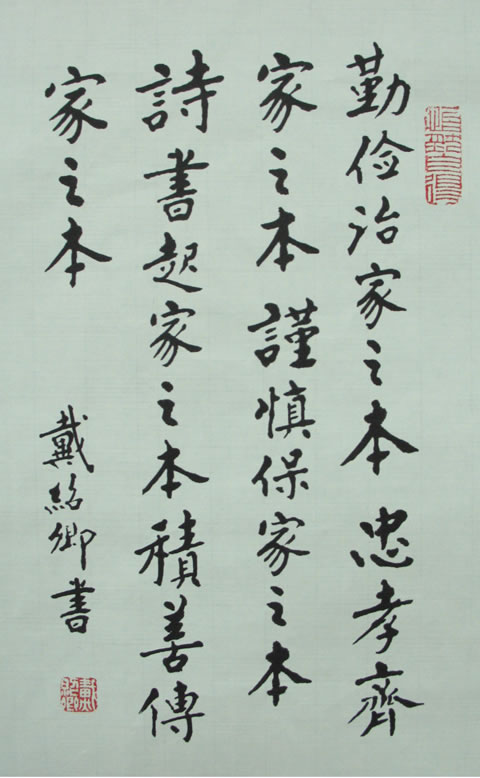 勤俭治家之本忠孝齊
家之本謹慎保家之本
詩書起家之本積善傳
家之本
戴紹卿書